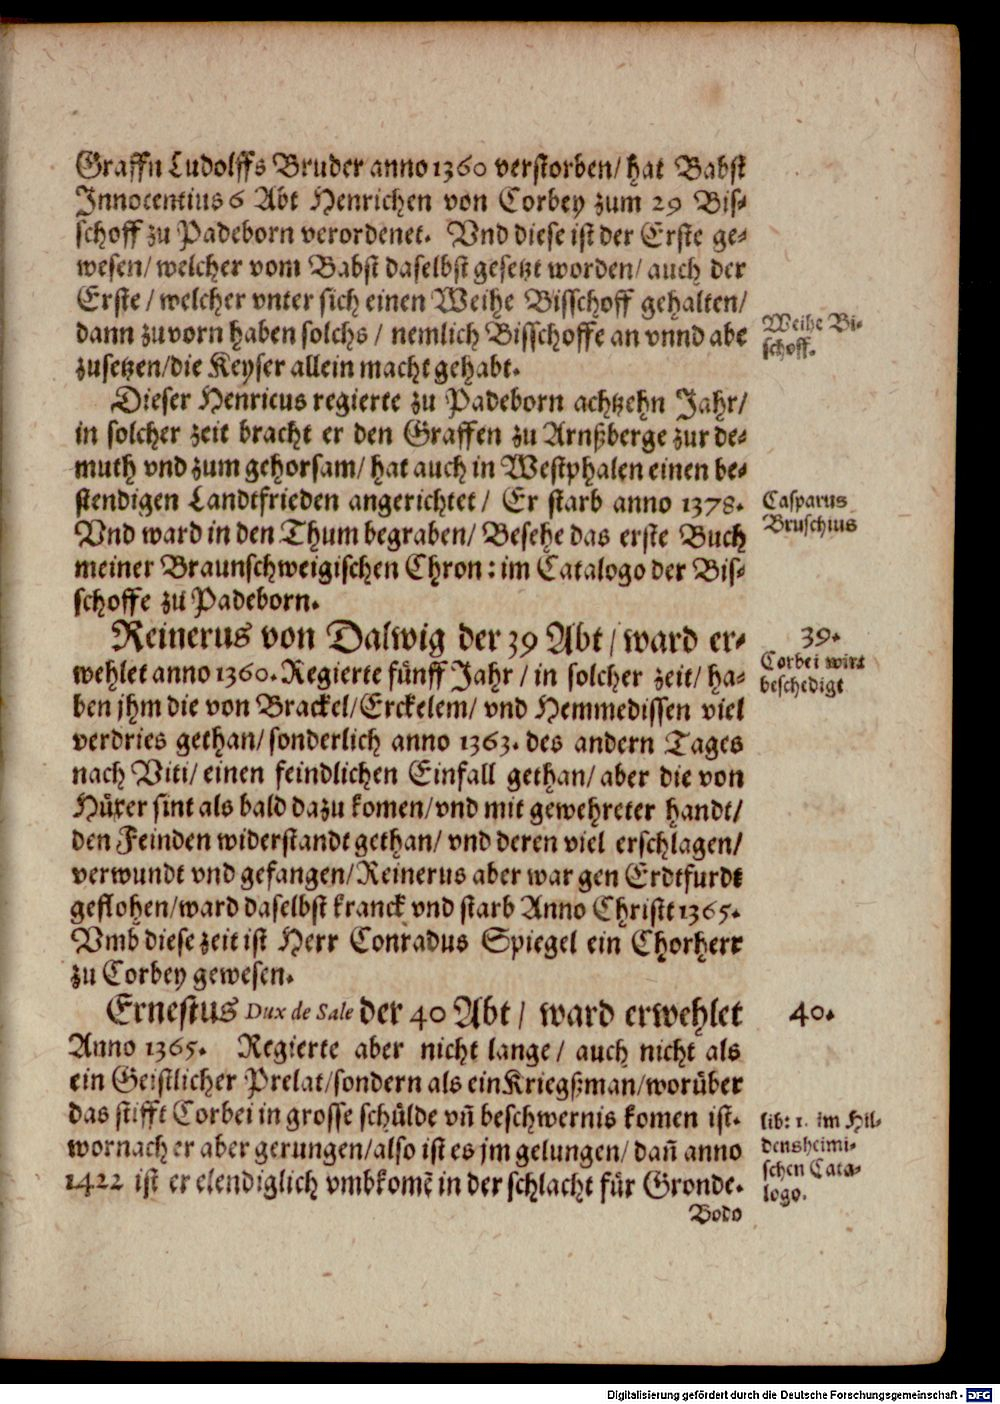 Graffn Ludolffs Bruder anno 1360 verstorben/ hat Babst
Innocentius 6 Abt Henrichen von Corbey zum 29 Bis-
schoff zu Padeborn verordenet. Vnd diese ist der Erste ge-
wesen/ welcher vom Babst daselbst gesetzt worden/ auch der
Erste/ welcher vnter sich einen Weihe Bisschoff gehalten/
dann zuvorn haben solchs/ nemlich Bisschoffe an vnnd abe
zusetzen/ die Keyser allein macht gehabt.
Weihe Bi-
schoff.
Dieser Henricus regierte zu Padeborn achtzehn Jahr/
in solcher zeit bracht er den Graffen zu Arnßberge zur de-
muth vnd zum gehorsam/ hat auch in Westphalen einen be-
stendigen Landtfrieden angerichtet/ Er starb anno 1378.
Vnd ward in den Thum begraben/ Besehe das erste Buch
meiner Braunschweigischen Chron: im Catalogo der Bis-
schoffe zu Padeborn.
Casparus
Bruschius
Reinerus von Dalwig der 39 Abt/ ward er-
wehlet anno 1360. Regierte fünff Jahr/ in solcher zeit/ ha-
ben jhm die von Brackel/ Erckelem/ vnd Hemmedissen viel
verdries gethan/ sonderlich anno 1363. des andern Tages
nach Viti/ einen feindlichen Einfall gethan/ aber die von
Hüxer sint als bald dazu komen/ vnd mit gewehreter handt/
den Feinden widerstandt gethan/ vnd deren viel erschlagen/
verwundt vnd gefangen/ Reinerus aber war gen Erdtfurdt
geflohen/ ward daselbst kranck vnd starb Anno Christi 1365.
Vmb diese zeit ist Herr Conradus Spiegel ein Chorherr
zu Corbey gewesen.
39.
Corbei wirt
beschedigt
Ernestus Dux de Sale der 40 Abt/ ward erwehlet
Anno 1365. Regierte aber nicht lange/ auch nicht als
ein Geistlicher Prelat/ sondern als ein Kriegßman/ worüber
das stifft Corbei in grosse schülde vñ beschwernis komen ist.
wornach er aber gerungen/ also ist es jm gelungen/ dañ anno
1422 ist er elendiglich vmbkomẽ in der schlacht für Gronde.
40.
lib: 1. im Hil-
densheimi-
schen Cata-
logo.
Bodo
Digitalisierung gefördert durch die Deutsche Forschungsgemeinschaft - DFG